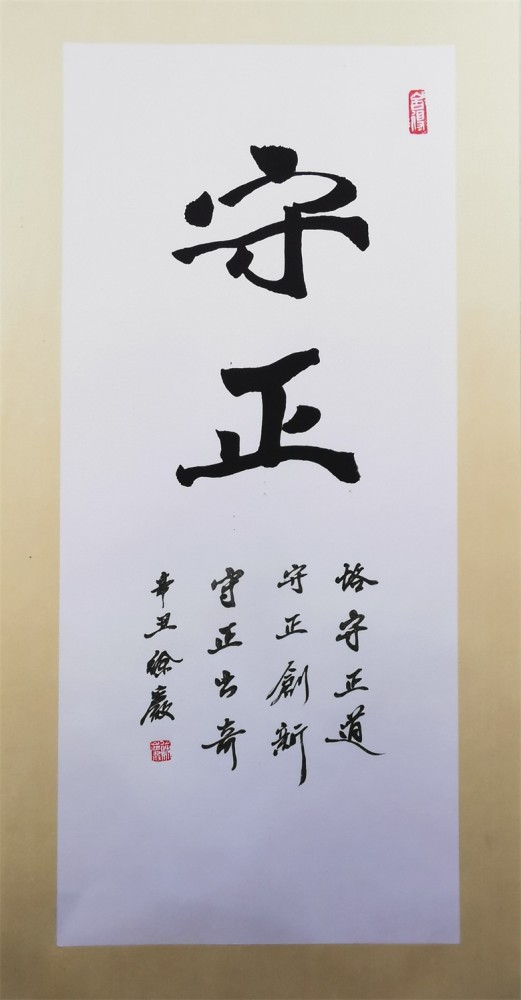 守
正
恪守正道
守正創新
守正出奇
辛丑徐嚴
舍得